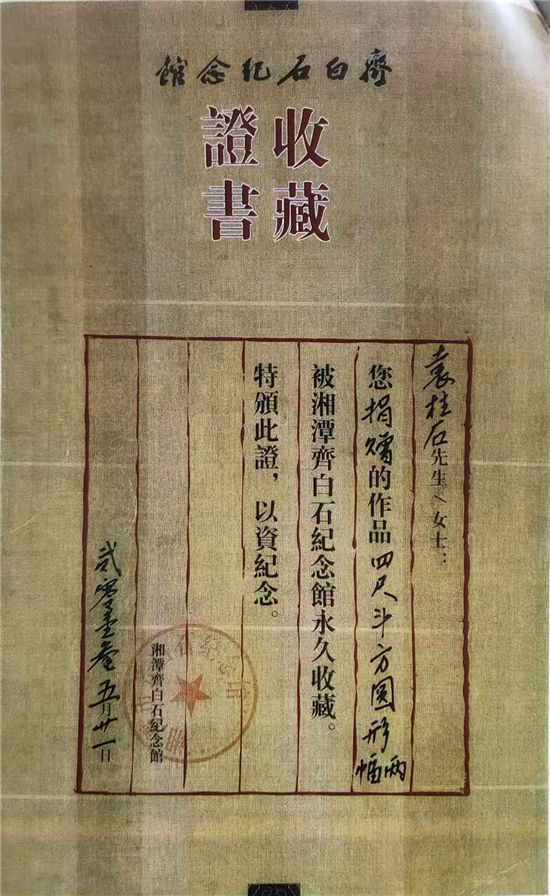 齊白石紀念館
收藏
證書
袁桂石先生/女士：
您捐赠的作品四尺斗方圆形两幅
被湘潭齊白石紀念館永久收藏。
特頒此證，以資紀念。
湘潭齊白石紀念館
弍零壹叁五月廿一日